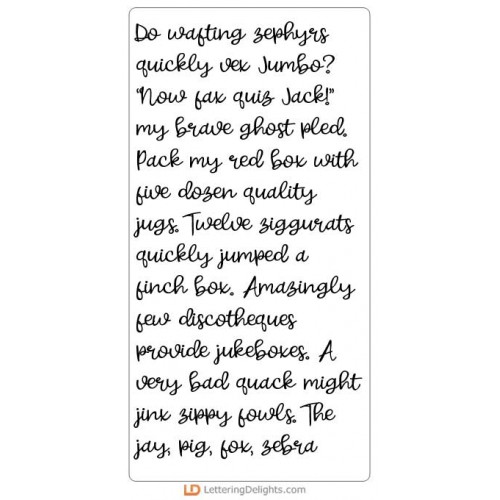 Do wafting zephyrs
quickly vex Jumbo?
"Now fax quiz Jack!"
my brave ghost pled.
Pack my red box with
five dozen quality
jugs. Twelve ziggurats
quickly jumped a
finch box. Amazingly
few discotheques
provide jukeboxes. A
very bad quack might
jinx zippy fowls. The
jay, pig, fox, zebra
LD LetteringDelights.com